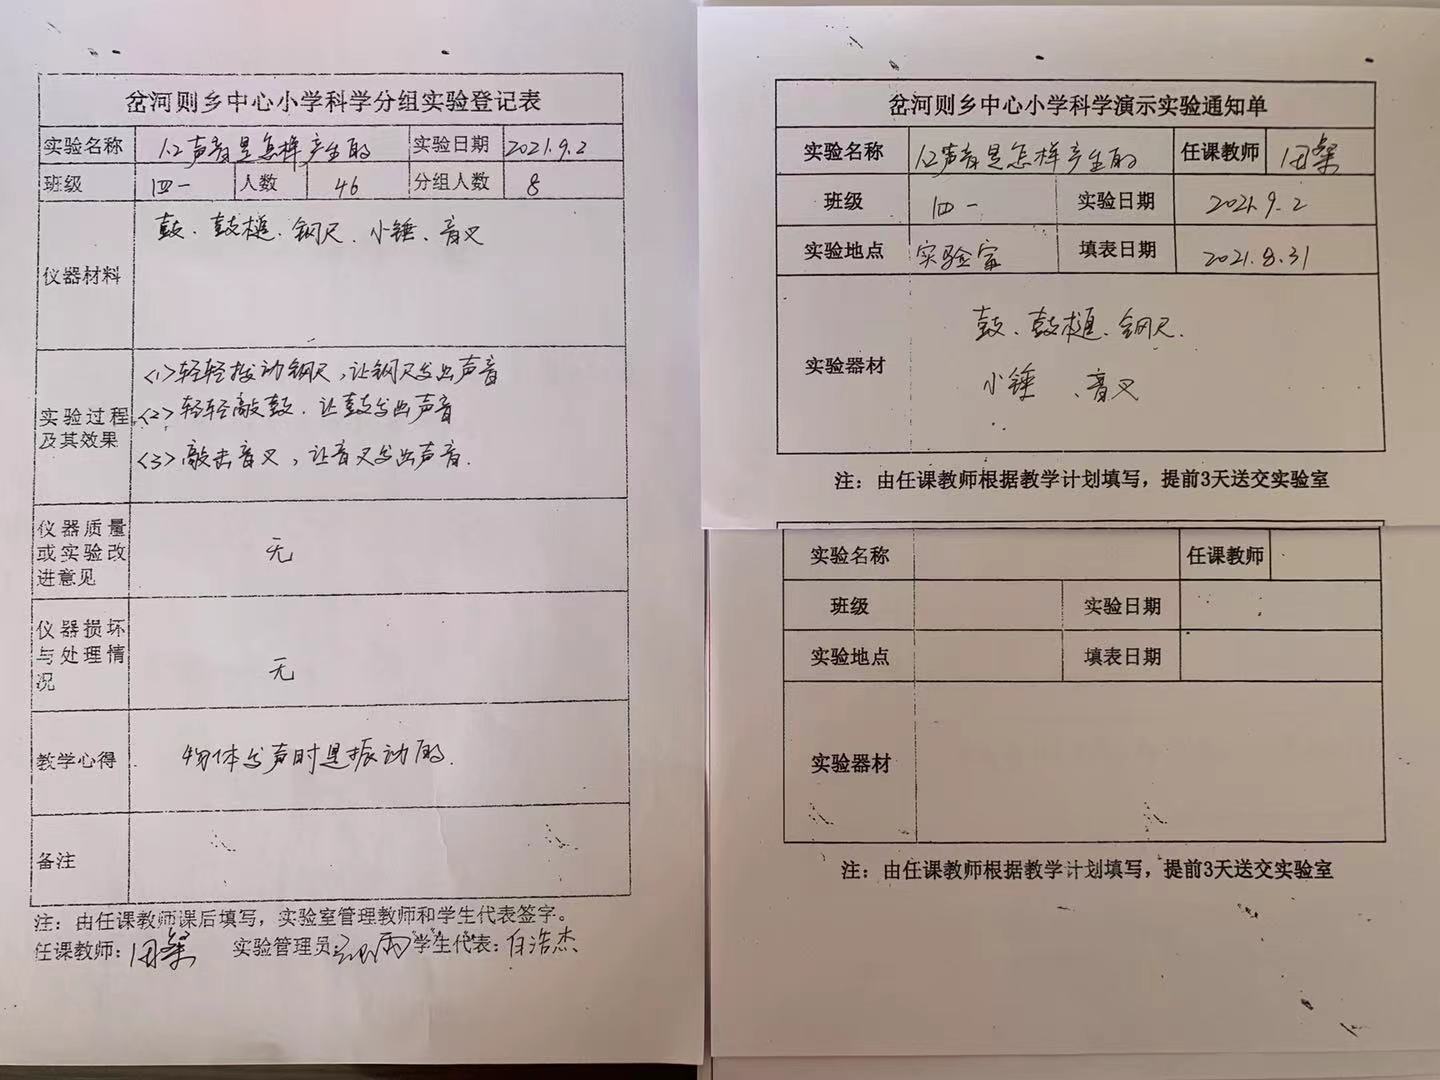 岔河则乡中心小学科学分组实验登记表
实验名称 1.2声音是怎样产生的 实验日期 2021.9.2
班级 四一 人数 46 分组人数 8
仪器材料 鼓、鼓槌、钢尺、小锤、音叉
实验过程及其效果
<1>轻轻拨动钢尺,让钢尺发出声音
<2>轻轻敲鼓,让鼓发出声音
<3>敲击音叉,让音叉发出声音.
仪器质量或实验改进意见 无
仪器损坏与处理情况 无
教学心得 物体发声时是振动的.
备注
注:由任课教师课后填写,实验室管理教师和学生代表签字。
任课教师: 实验管理员: 学生代表:白浩杰
岔河则乡中心小学科学演示实验通知单
实验名称 1.2声音是怎样产生的 任课教师
班级 四一 实验日期 2021.9.2
实验地点 实验室 填表日期 2021.8.31
实验器材 鼓、鼓槌、钢尺.
小锤、音叉
注:由任课教师根据教学计划填写,提前3天送交实验室
实验名称 任课教师
班级 实验日期
实验地点 填表日期
实验器材
注:由任课教师根据教学计划填写,提前3天送交实验室